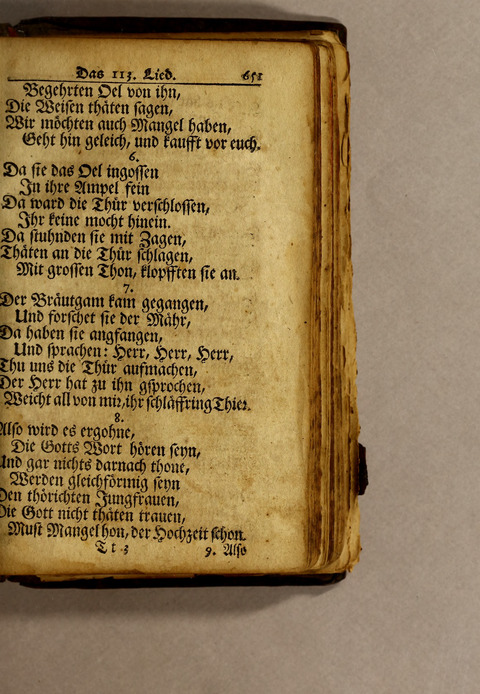 Das 113. Lied. 651
Begehrten Oel von ihn,
Die Weisen thäten sagen,
Wir möchten auch Mangel haben,
Geht hin geleich, und kaufft vor euch.
6.
Da sie das Oel ingossen
In ihre Ampel fein
Da ward die Thür verschlossen,
Ihr keine mocht hinein.
Da stuhnden sie mit Zagen,
Thäten an die Thür schlagen,
Mit grossen Thon, klopfften sie an.
7.
Der Bräutgam kam gegangen,
Und forschet sie der Mähr,
Da haben sie angfangen,
Und sprachen: Herr, Herr, Herr,
Thu uns die Thür aufmachen,
Der Herr hat zu ihn gsprochen,
Weicht all von mir, ihr schläffring Thier.
8.
Also wird es ergohne,
Die Gotts Wort hören seyn,
Und gar nichts darnach thone,
Werden gleichförmig seyn
Den thörichten Jungfrauen,
Die Gott nicht thäten trauen,
Must Mangel hon, der Hochzeit schon.
T t 3 9. Also